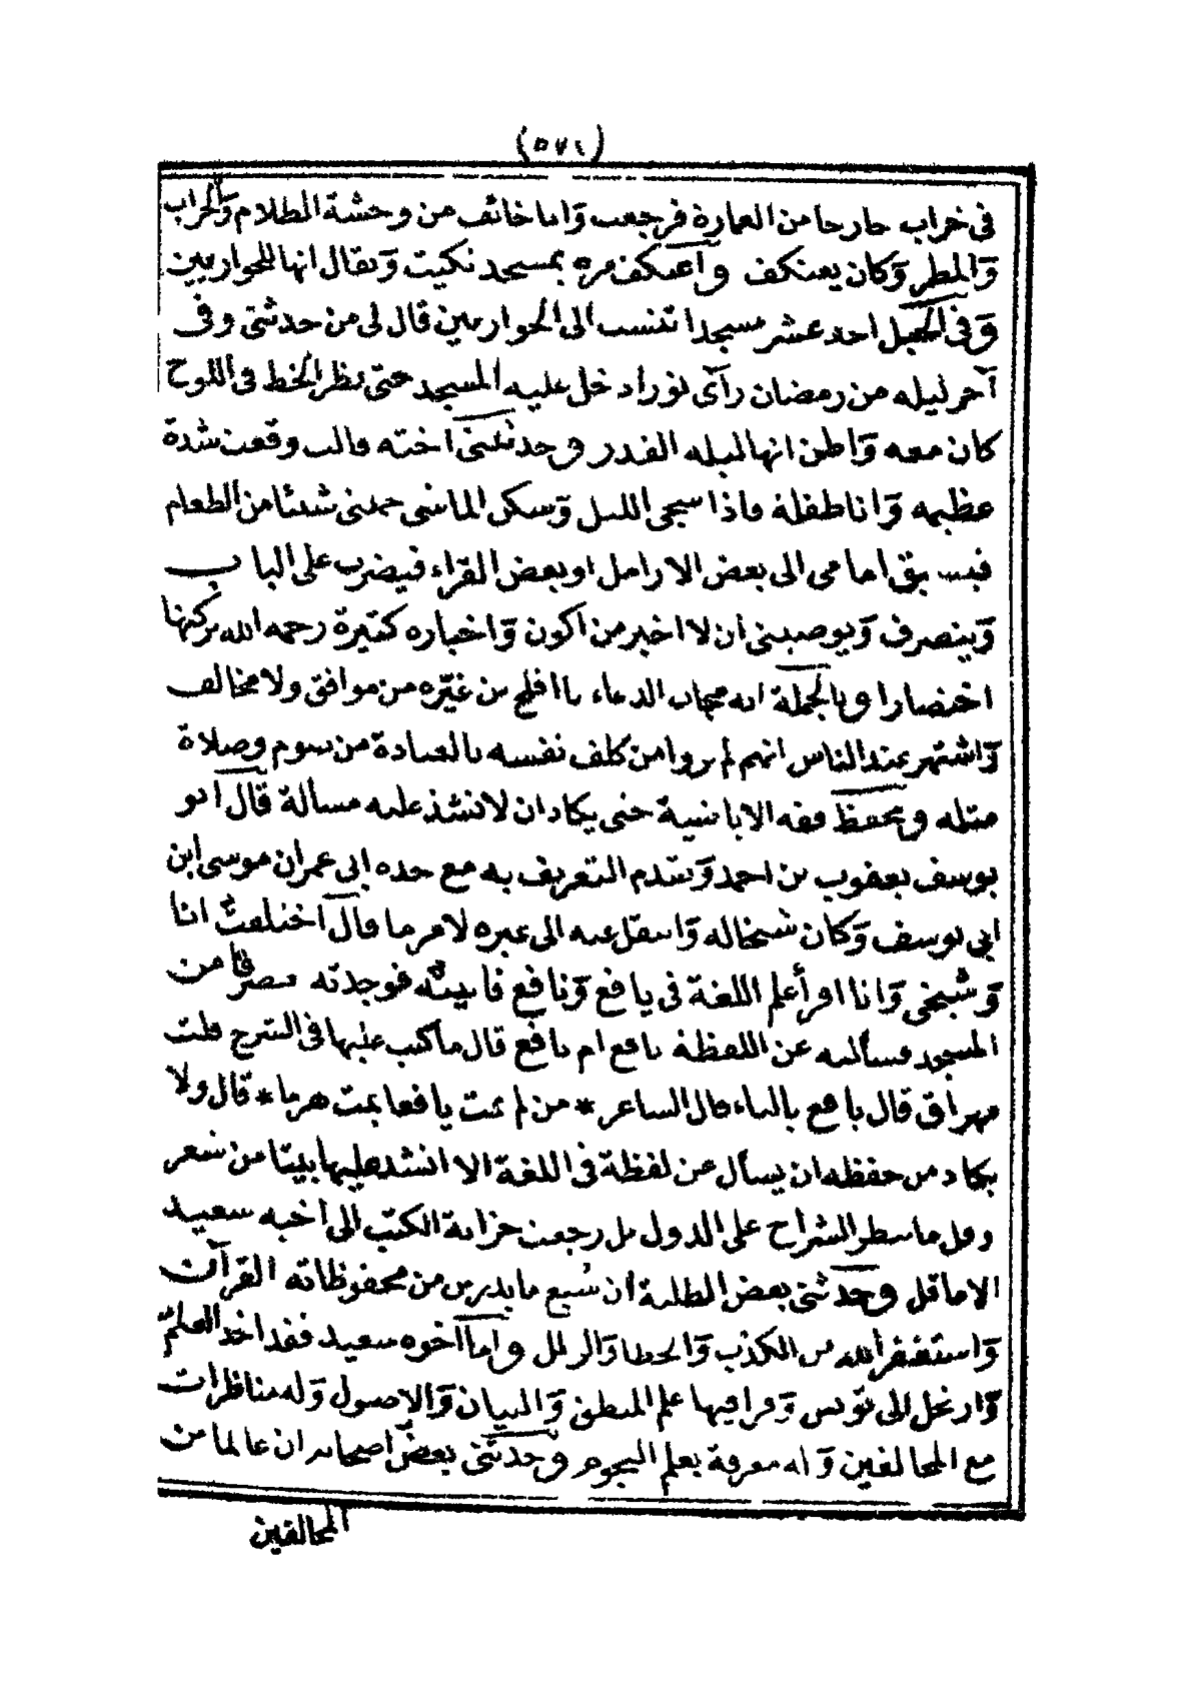 (٥٧١)
فى خراب خارجا من العمارة فرجعت وانا خائف من وحشة الظلام والخراب
والمطر وكان يعتكف واعتكف مرة بمسجد تكيت ويقال انها للحواريين
وفى الجبل احد عشر مسجدا تنسب الى الحواريين قال لى من حدثنى وفى
آخر ليله من رمضان رآى نورا دخل عليه المسجد حتى نظر الخط فى اللوح
كان معه واظن انها ليله القدر وحدثتنى اخته قالت وقعت شدة
عظيمه وانا طفلة فاذا سجى الليل وسكن الماشى حملنى شيئا من الطعام
فيسبق امامى الى بعض الارامل او بعض القراء فيضرب على الباب
وينصرف ويوصينى ان لا اخبر من اكون واخباره كثيرة رحمه الله تركتها
اختصارا وبالجملة انه مجاب الدعاء ما افلح من غيّره من موافق ولا مخالف
واشتهر عند الناس انهم لم يروا من كلف نفسه بالعبادة من صوم وصلاة
مثله ويحفظ فقه الاباضية حتى يكاد ان لا تشذ عليه مسألة قال ابو
يوسف يعقوب بن احمد وتقدم التعريف به مع جده ابى عمران موسى ابن
ابى يوسف وكان شيخا له وانتقل عنه الى غيره لامر ما قال اختلفت انا
وشيخى وانا اقرأ علم اللغة فى يافع ونافع فأتيته فوجدته منصرفا من
المسجد فسألته عن اللفظة يافع ام نافع قال ما كتب عليها فى الشرح قلت
مهراق قال يافع بالياء قال الشاعر * من لم يمت يافعا يمت هرما * قال ولا
يكاد من حفظه ان يسأل عن لفظة فى اللغة الا انشد عليها بيتا من شعر
وقل ما سطر الشراح على الدول بل رجعت خزانة الكتب الى اخيه سعيد
الا ما قل وحدثنى بعض الطلبة ان سُبع ما يدرس من محفوظاته القرآن
واستغفر الله من الكذب والخطا والزلل واما اخوه سعيد فقد اخذ العلم
وارتحل الى تونس وقرأ فيها علم المنطق والبيان والاصول وله مناظرات
مع المخالفين وله معرفة بعلم النجوم وحدثنى بعض اصحابه ان عالما من
المخالفين